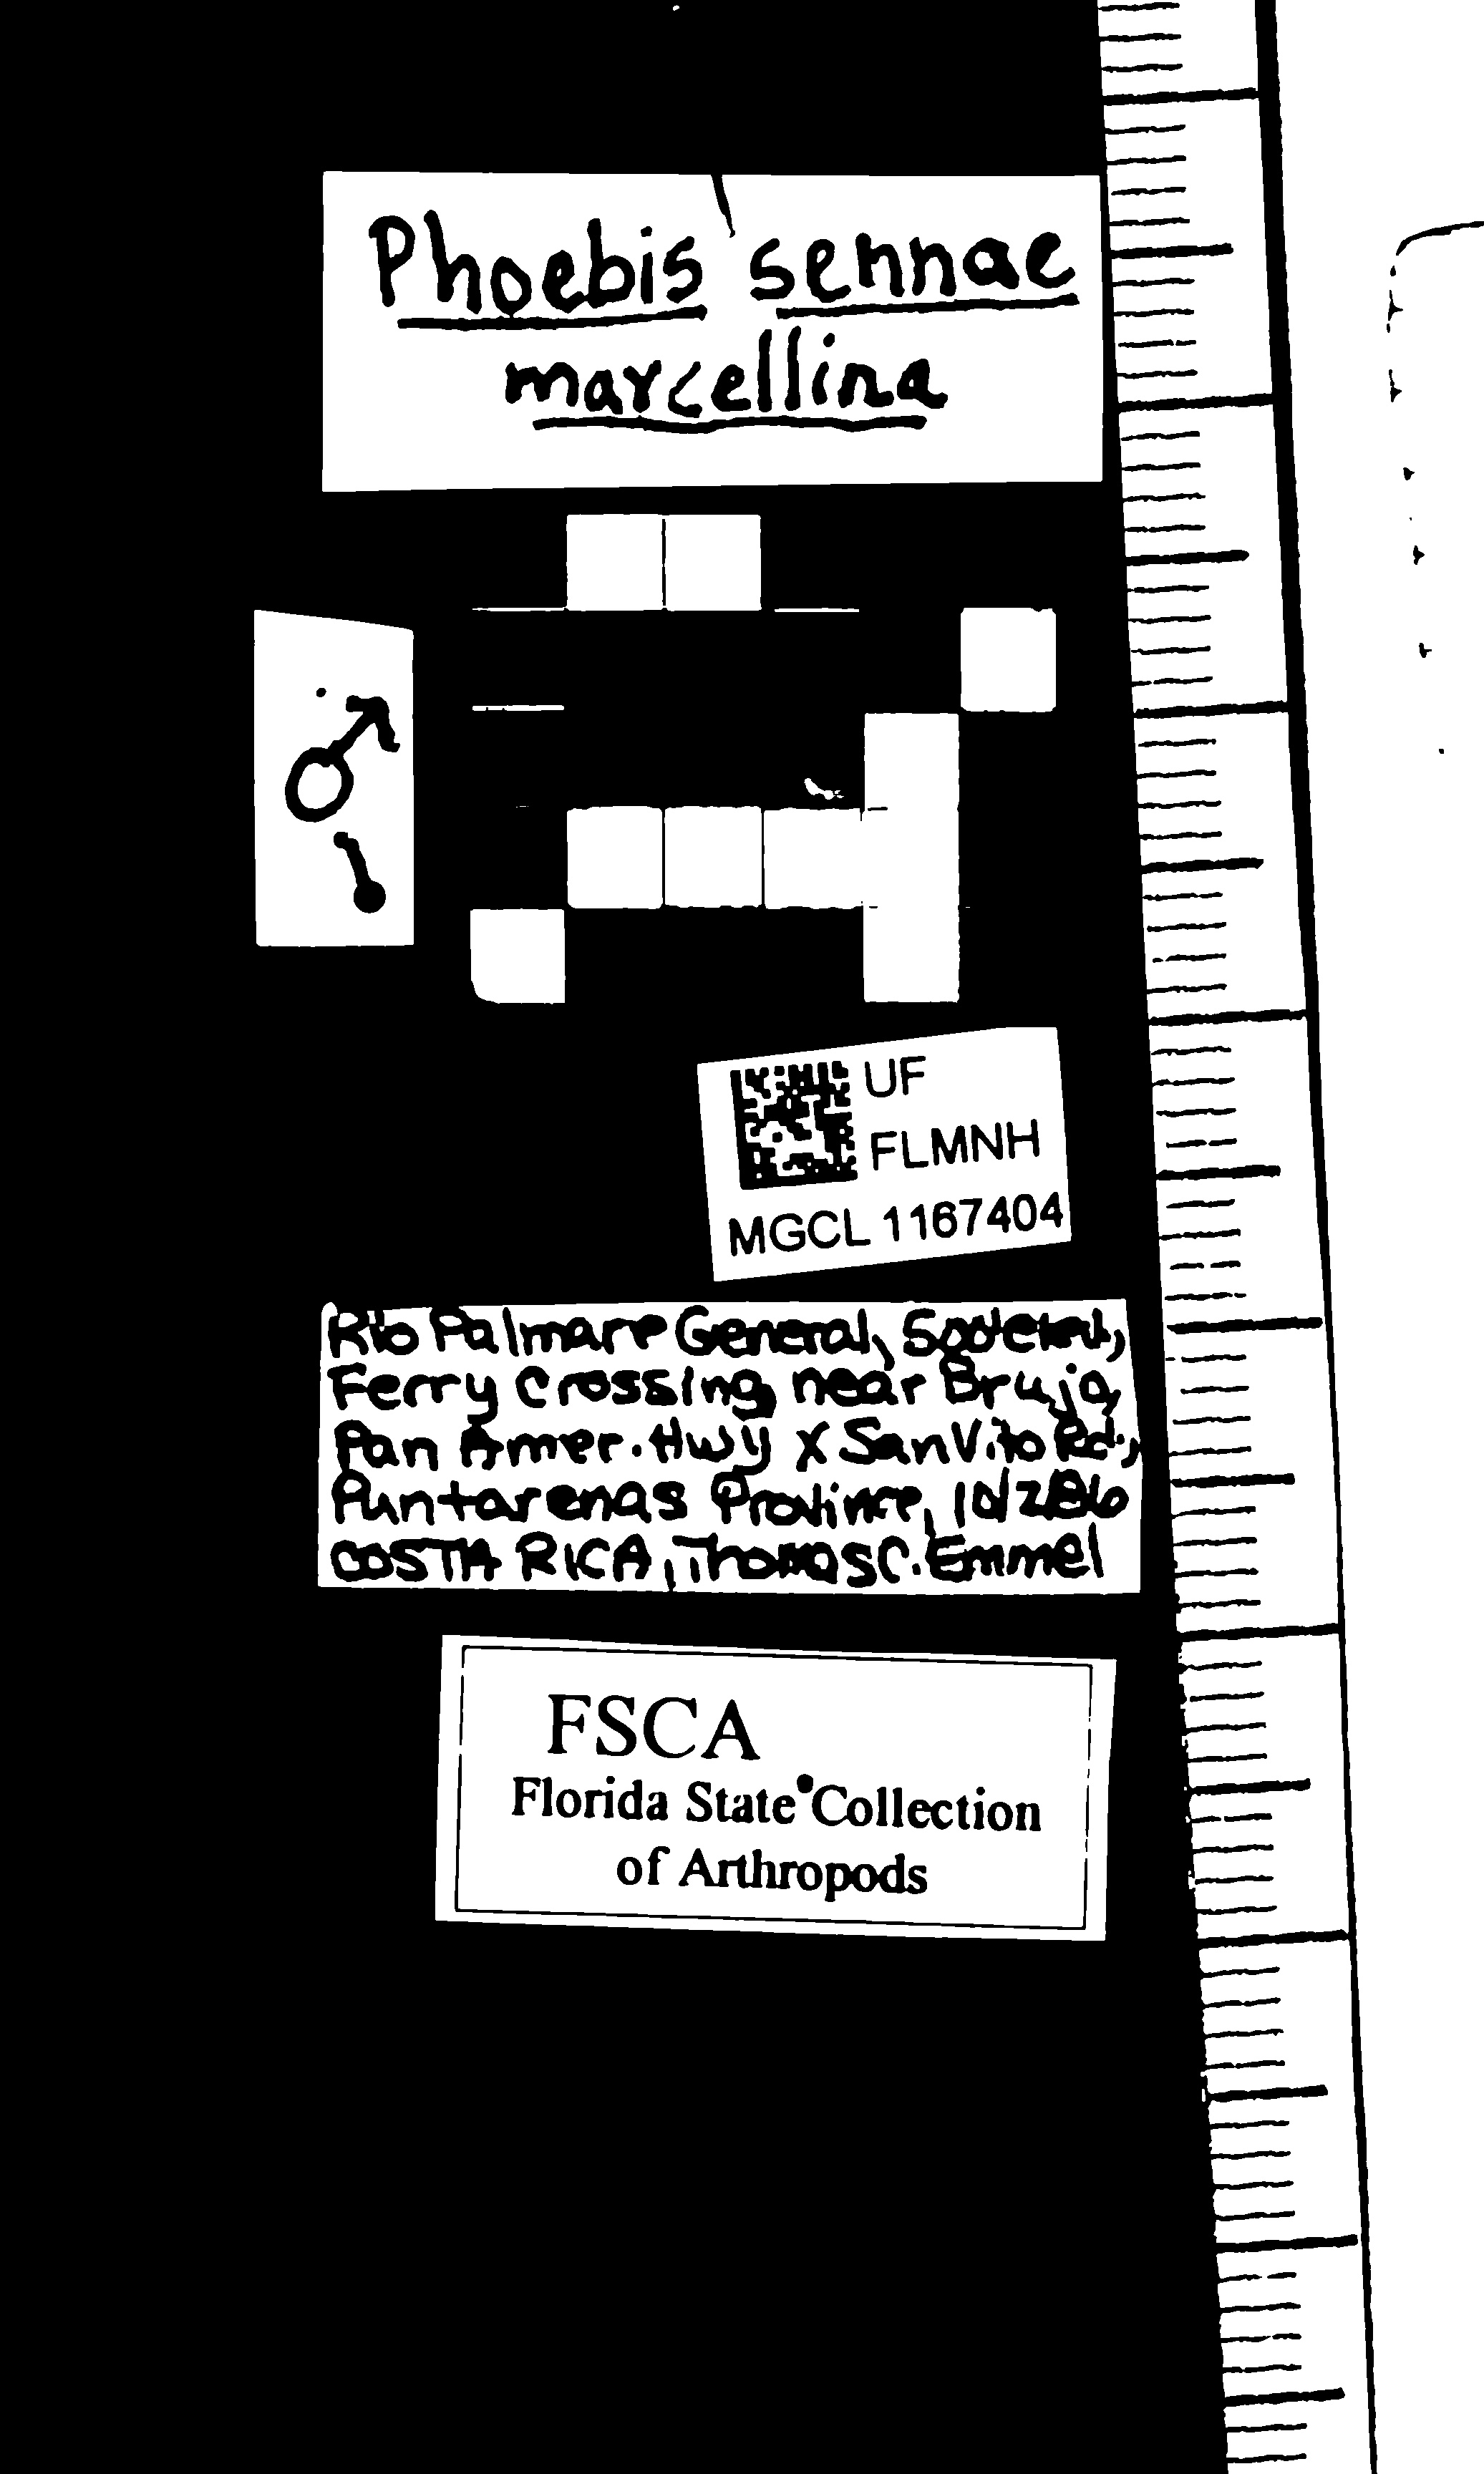 Phoebis sennae
marcellina
♂
UF
FLMNH
MGCL 1167404
Rio Palmare General,
Ferry Crossing near Bruja,
Pan Amer. Hwy X San Vito Rd.,
Puntarenas Province,
COSTA RICA, Thomas C. Emmel
FSCA
Florida State Collection
of Arthropods